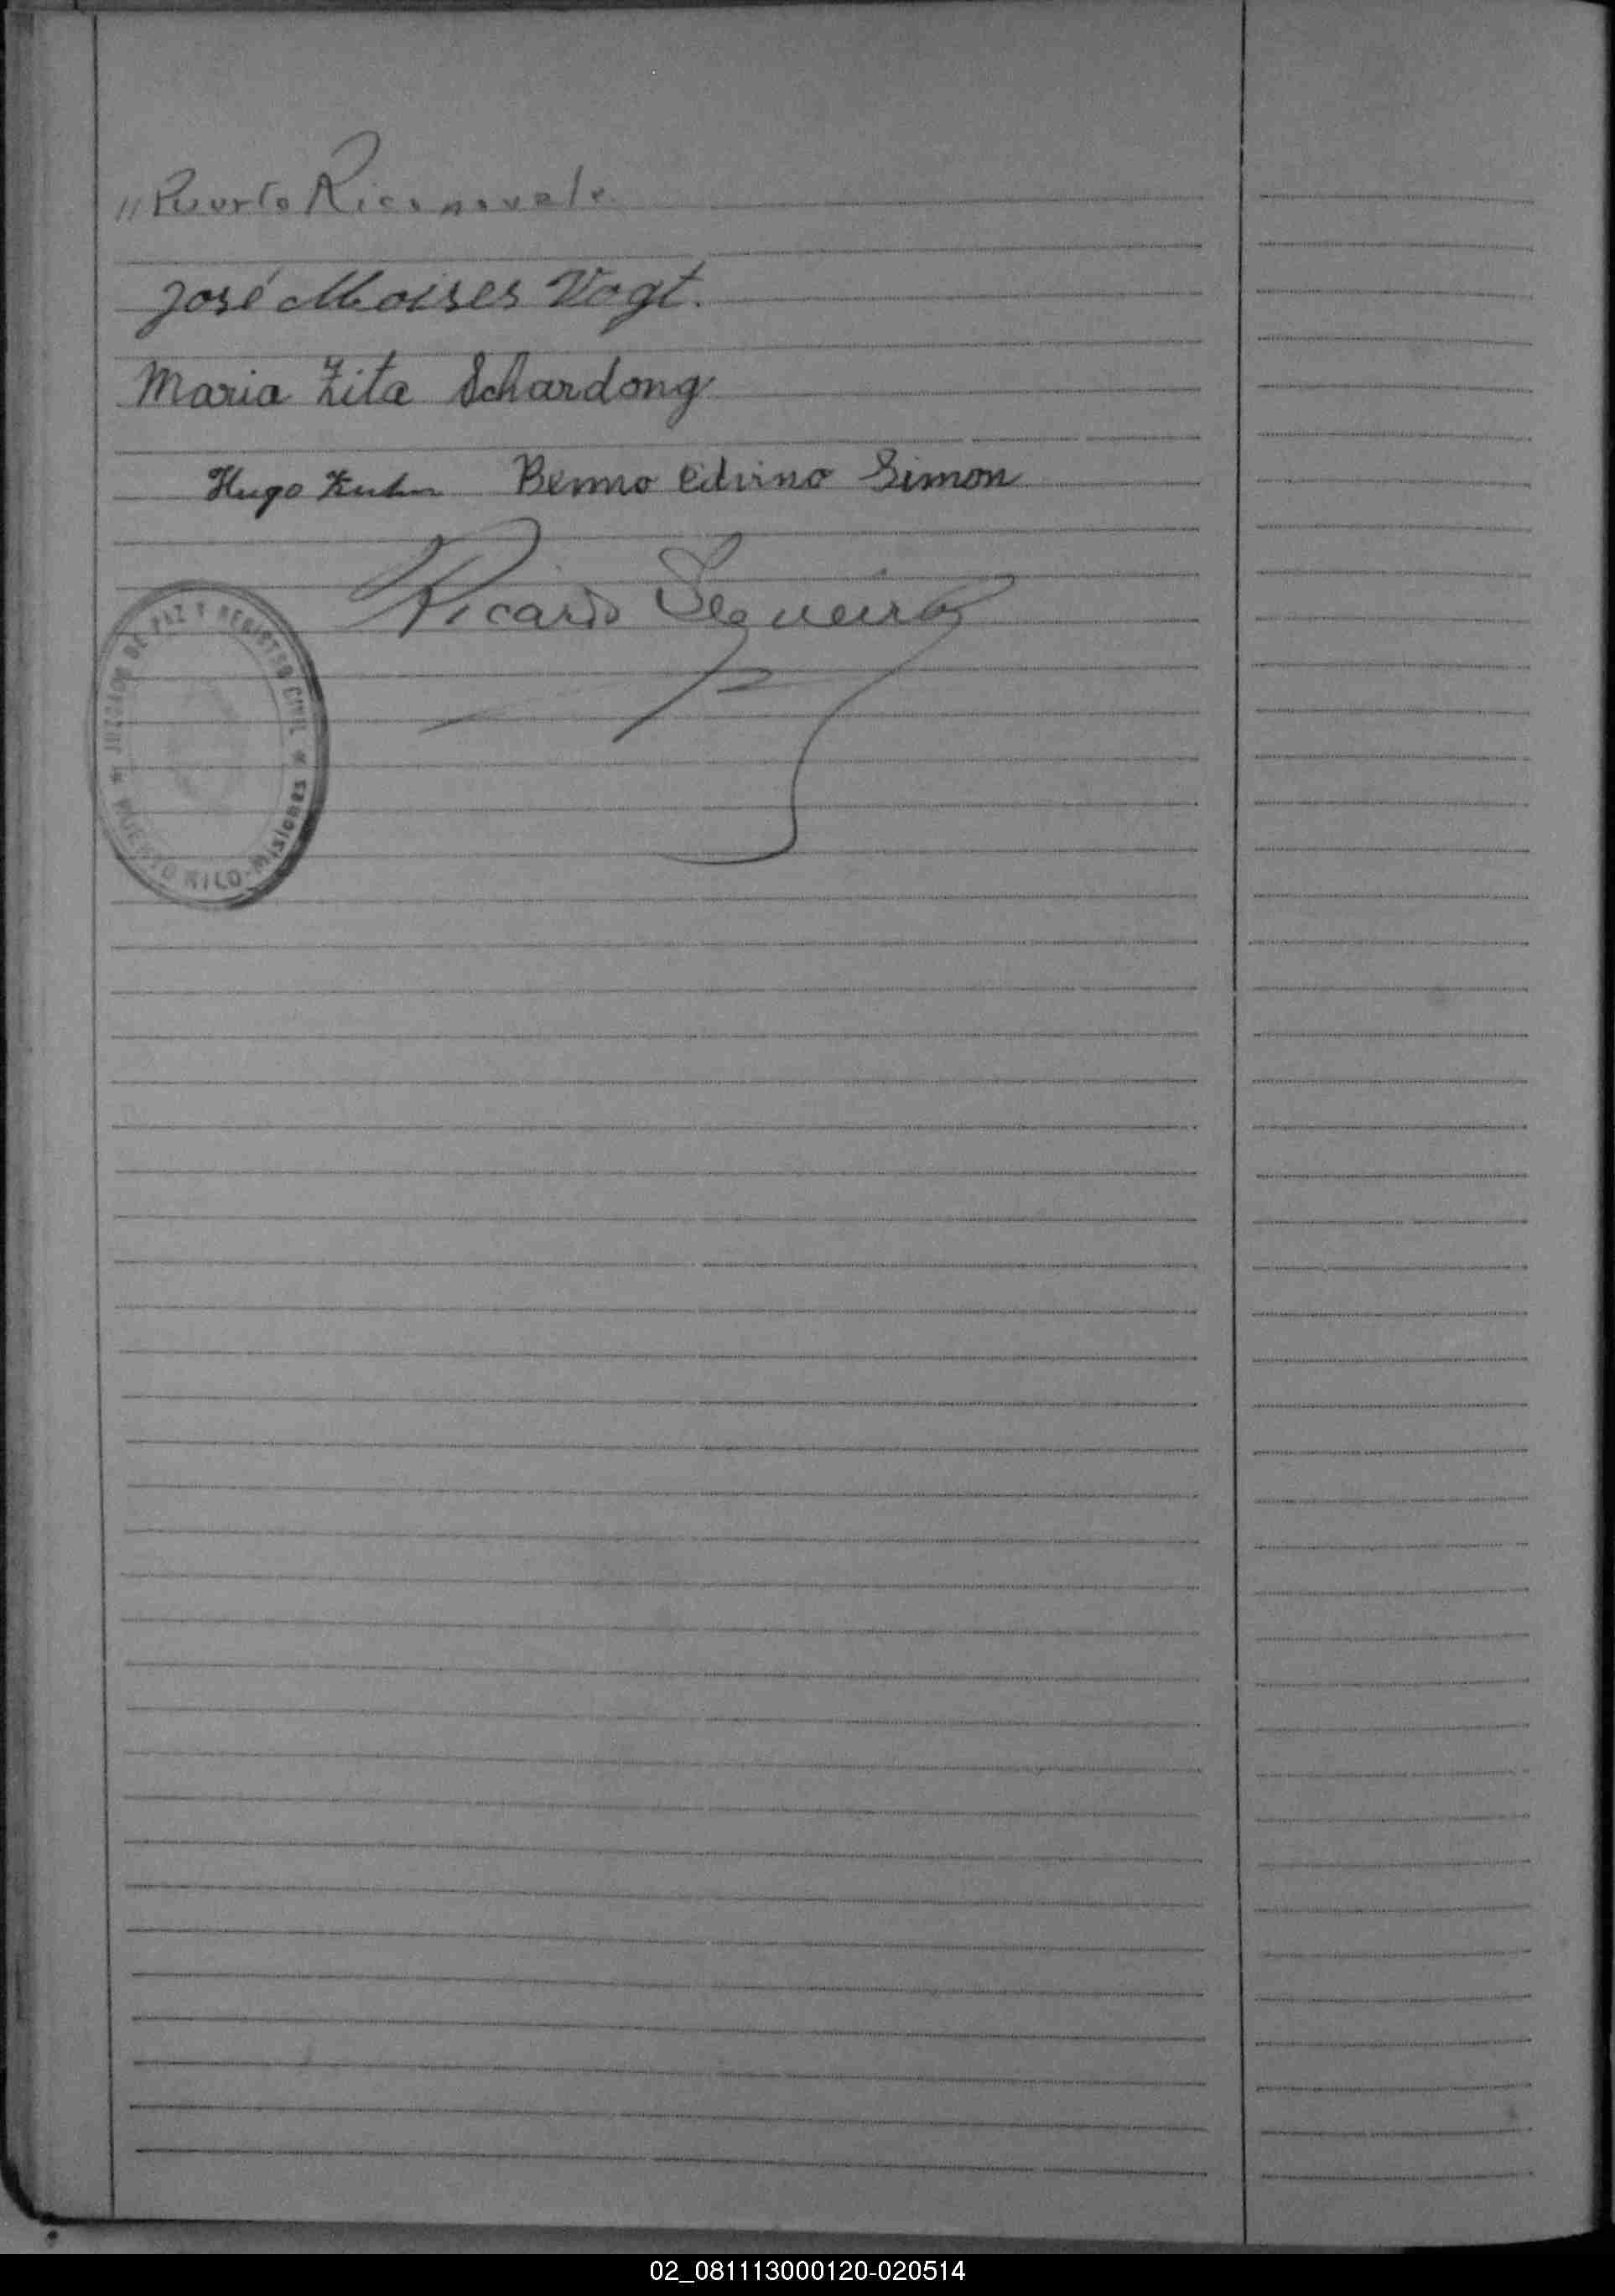 "Puerto Rico no vale
José Moises Vogt.
Maria Zita Schardong
Hugo Kuhn Benno Edvino Simon
Ricardo Sequeira
JUZGADO DE PAZ Y REGISTRO CIVIL * PUERTO RICO - Misiones *
02_081113000120-020514